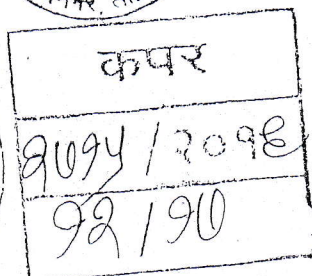 कपर
२७१५ / २०१६
१२ / १७